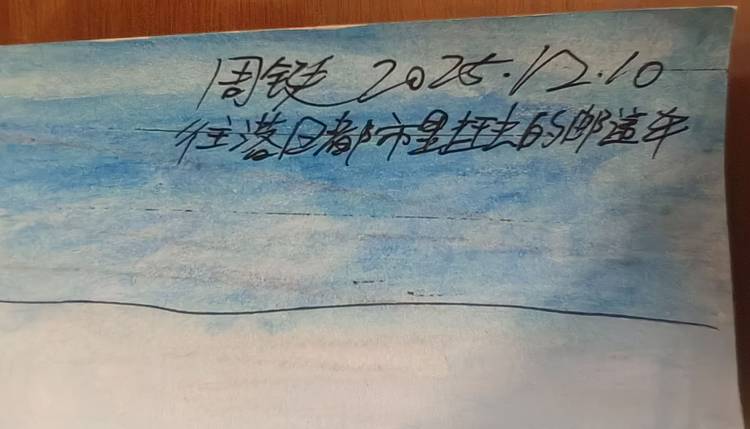 周铤 2025.12.10
往落日都市里赶去的邮递车